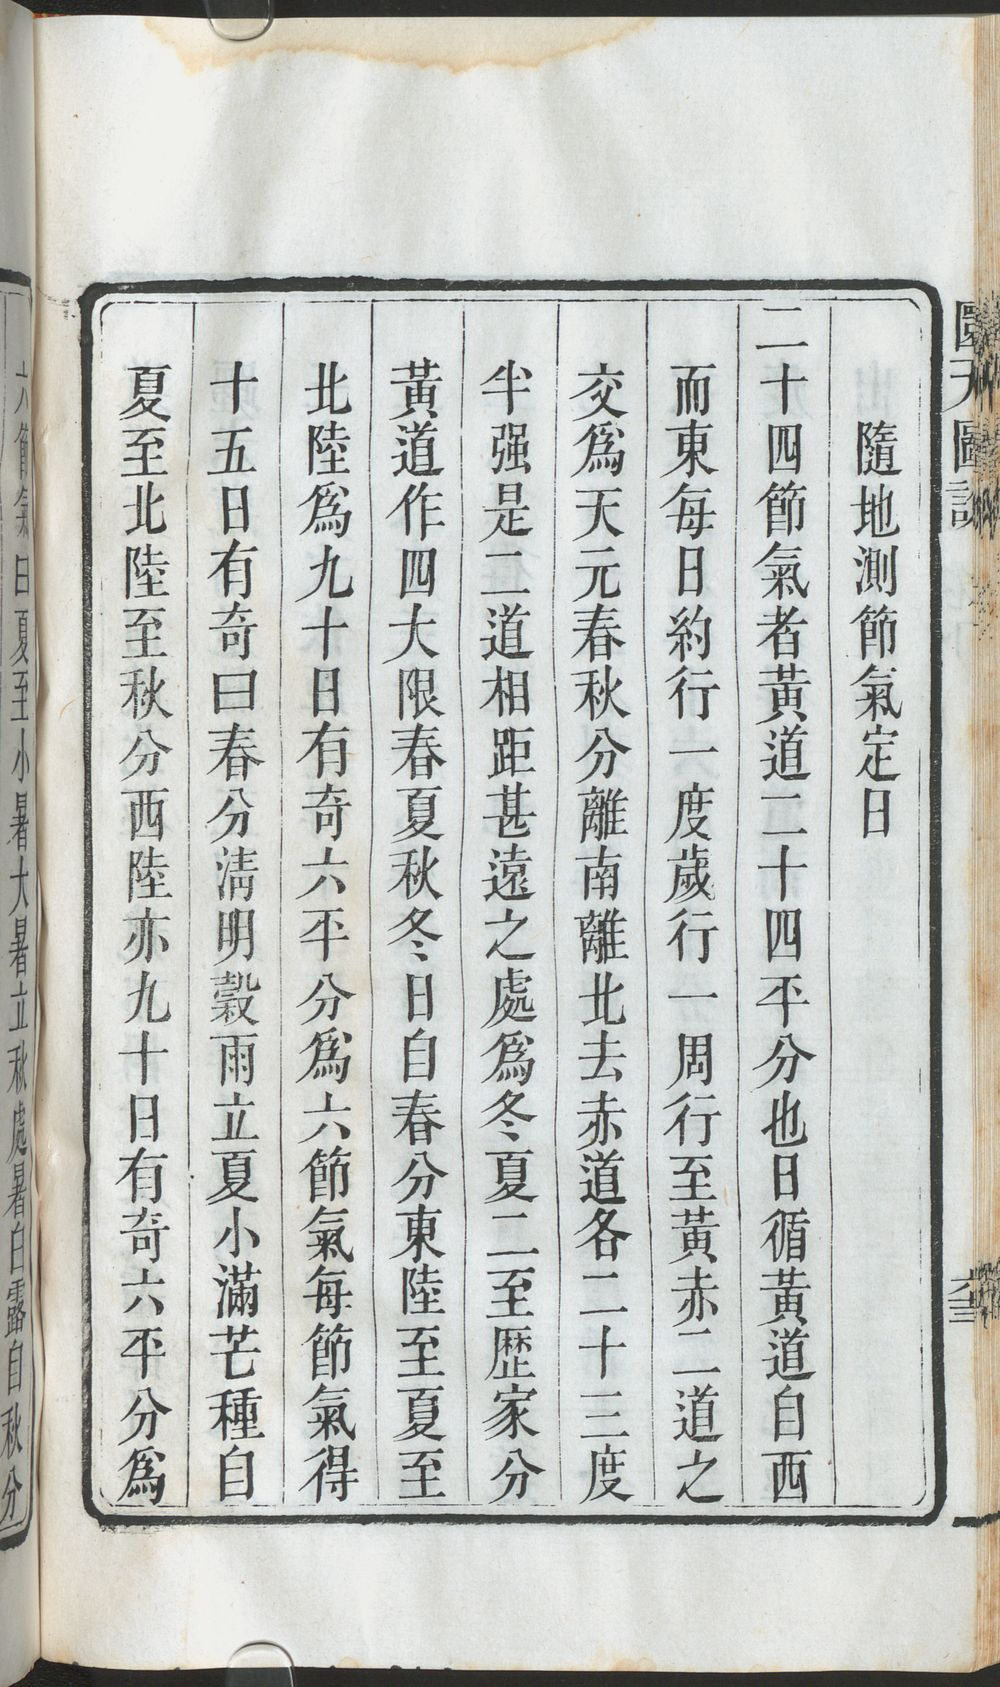 隨地測節氣定日
二十四節氣者黃道二十四平分也日循黃道自西
而東每日約行一度歲行一周行至黃赤二道之
交爲天元春秋分離南離北去赤道各二十三度
半强是二道相距甚遠之處爲冬夏二至歴家分
黃道作四大限春夏秋冬日自春分東陸至夏至
北陸爲九十日有奇六平分爲六節氣每節氣得
十五日有奇曰春分淸明穀雨立夏小滿芒種自
夏至北陸至秋分西陸亦九十日有奇六平分爲
六節氣曰夏至小暑大暑立秋處暑白露自秋分